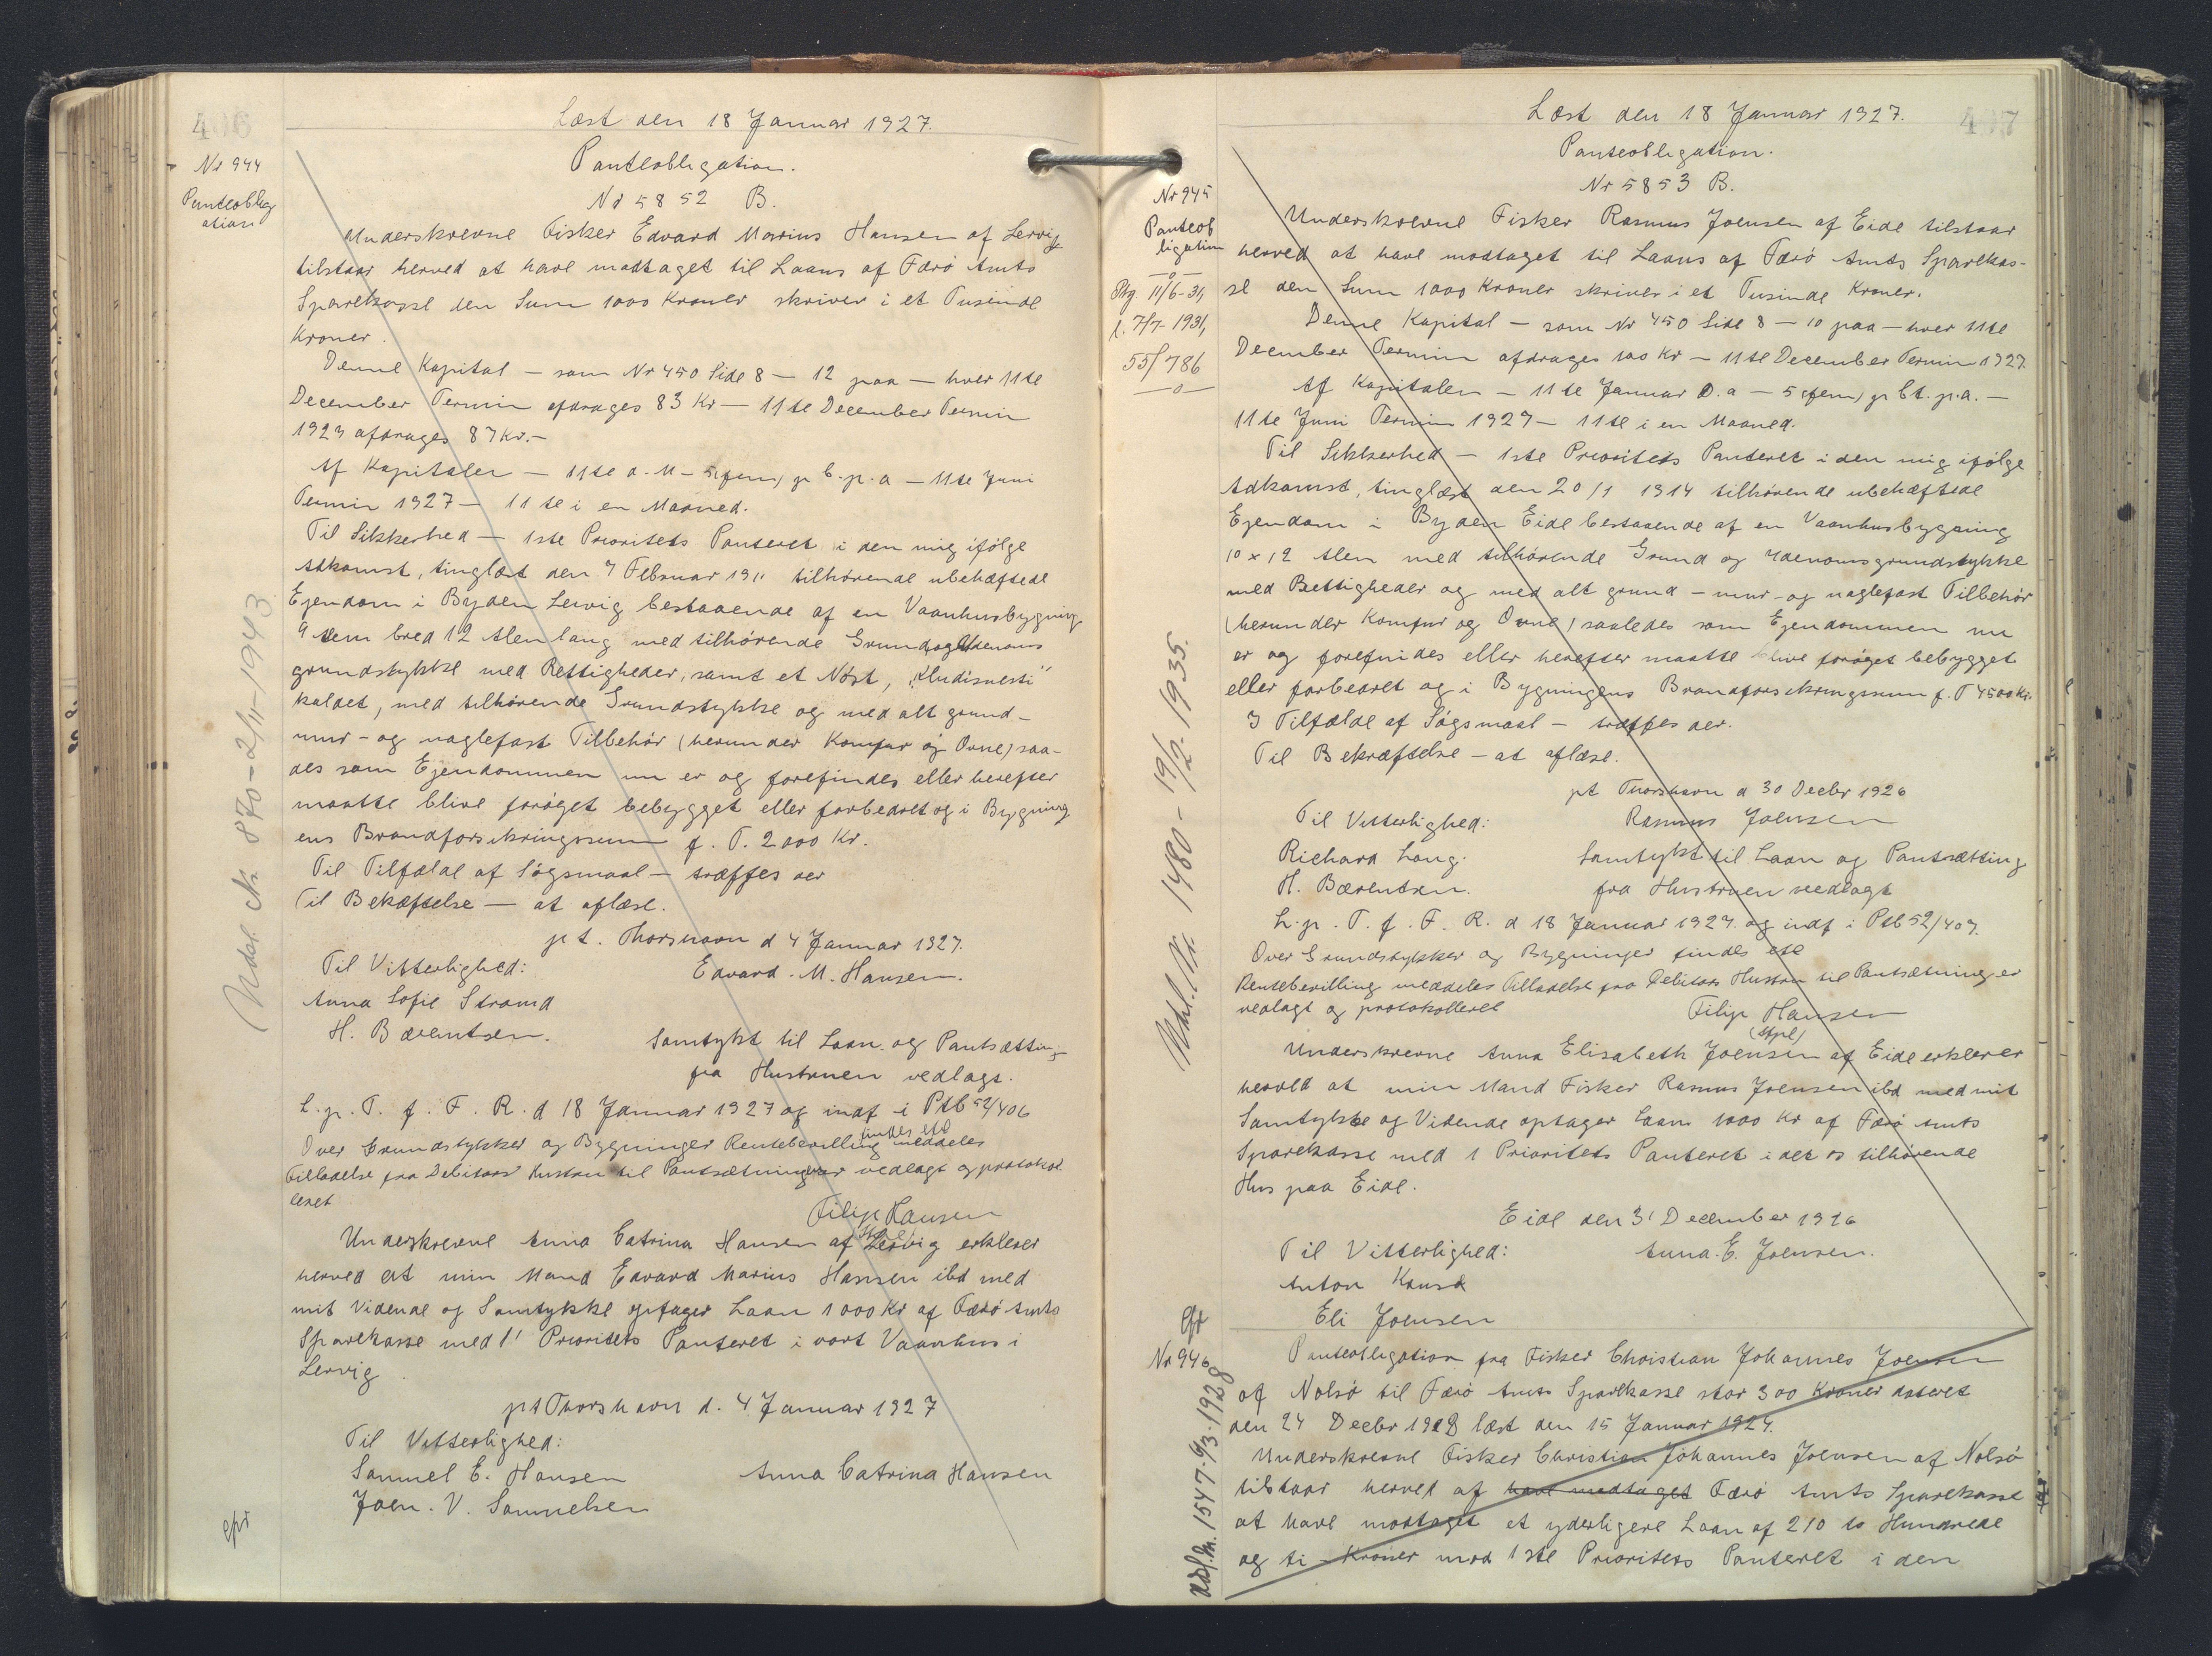 406
Læst den 18 Januar 1927.
Nr 944
Panteoblig
ation
Panteobligation.
Nr 5852 B.
Underskrevne Fisker Edvard Marius Hansen af Lervig
tilstaar herved at have modtaget til Laans af Færø Amts
Sparekasse den Sum 1000 Kroner skriver i et Tusinde
Kroner.
Denne Kapital — som Nr 450 Side 8 — 12 paa — hver 11te
December Termin afdrages 83 Kr — 11te December Termin
1927 afdrages 87 Kr.-
Af Kapitalen — 11te d. M — 5 (fem) p C. p. a — 11te Juni
Termin 1927 — 11te i en Maaned.
Til Sikkerhed — 1ste Prioritets Panteret i den mig ifølge
Adkomst, tinglæst den 7 Februar 1911 tilhørende ubehæftede
Ejendom i Byden Lervig bestaaende af en Vaanhusbygning
9 Alem bred 12 Alen lang med tilhørende Grund og Udenoms
grundstykke med Rettigheder, samt et Nøst,
kaldet, med tilhørende Grundstykke og med alt grund-
mur- og naglefast Tilbehør (herunder Komfur og Ovne) saa-
des som Ejendommen nu er og forefindes eller herefter
maatte blive forøget bebygget eller forbedret og i Bygning
ens Brandforsikringssum f. T. 2000 Kr.
Til Tilfælde af Søgsmaal — træffes der
Til Bekæftelse — at aflæse.
pt. Thorshavn d 4 Januar 1927.
Til Vitterlighed:
Edvard. M. Hansen.
Anna Sofie
H. Bærentsen.
Samtykt til Laan og Pantsætting
fra Hustruen vedlagt.
L. p. T. f. F. R. d 18 Januar 1927 og indf i Ptb 52/406
Over Grundstykker og Bygninger findes ell Rentebevilling meddeles
Tilladelse fra Debitors Hustru til Pantsætning er vedlagt og protokol
leret
Filip Hansen
Underskrevne Anna Catrina Hansen af Lervig erklerer
herved at min Mand Edvard Marius Hansen ibd med
mit Vidende og Samtykke optager Laan 1000 Kr af Færø Amts
Sparekasse med 1' Prioritets Panteret i vort Vaanhus i
Lervig
pt Thorshavn d. 4 Januar 1927
Til Vitterlighed:
Samuel E. Hansen
Anna Catrina Hansen
Joen. V. Samuelsen
Udsl. Nr 870 - 2/11 - 1943
407
Læst den 18 Januar 1927.
Panteobligation.
Nr 5853 B.
Nr 945
Panteob
ligation
11/6-31,
l. 7/7 1931,
55/786
Underskrevne Fisker Rasmus Joensen af Eide tilstaar
herved at have modtaget til Laans af Færø Amts Sparekas-
se den Sum 1000 Kroner skriver i et Tusinde Kroner.
Denne Kapital — som Nr 450 Side 8 — 10 paa — hver 11te
December Termin afdrages 100 Kr — 11te December Termin 1927
Af Kapitalen — 11te Januar D. a — 5 (fem) p Ct. p.a. —
11te Juni Termin 1927 — 11te i en Maaned.
Til Sikkerhed — 1ste Prioritets Panteret i den mig ifølge
Adkomst, tinglæst den 20/1 1914 tilhørende ubehæftede
Ejendom i Byden Eide bestaaende af en Vaanhusbygning
10 x 12 Alen med tilhørende Grund og Udenomsgrundstykke
med Rettigheder og med alt grund - mur- og naglefast Tilbehør
(herunder Komfur og Ovne) saaledes som Ejendommen nu
er og forefindes eller herefter maatte blive forøget bebygget
eller forbedret og i Bygningens Brandforsikringssum f. T 4500 Kr.
I Tilfælde af Søgsmaal — træffes der.
Til Bekræftelse — at aflæse.
pt Thorshavn d 30 Decbr 1926
Til Vitterlighed:
Rasmus Joensen
Richard Long.
Samtykt til Laan og Pantsætting
H. Bærentsen.
fra Hustruen vedlagt
L. p. T. f. F. R. d 18 Januar 1927. og indf i Ptb 52/407.
Over Grundstykker og Bygninger findes ell
Rentebevilling meddeles Tilladelse fra Debitors Hustru til Pantsætning er
vedlagt og protokolleret
Filip Hansen
Underskrevne Anna Elisabeth Joensen af Eide erklerer
herved at min Mand Fisker Rasmus Joensen ibd med mit
Samtykke og Vidende optager Laan 1000 Kr af Færø Amts
Sparekasse med 1 Prioritets Panteret i det os tilhørende
Hus paa Eide.
Eide den 31 December 1926
Til Vitterlighed:
Anna. E. Joensen.
Anton
Eli Joensen
Udsl. Nr. 1480 - 19/12. 1935.
Nr 946
Panteobligation fra Fisker Christian Johannes Joensen
af Nolsø til Færø Amts Sparekasse stor 300 Kroner dateret
den 24 Decbr 1923 læst den 15 Januar 1924.
Underskrevne Fisker Christian Johannes Joensen af Nolsø
tilstaar herved af have modtaget Færø Amts Sparekasse
at have modtaget et yderligere Laan af 210 to Hundrede
og ti - Kroner mod 1ste Prioritets Panteret i den
1547. 9/3. 1928